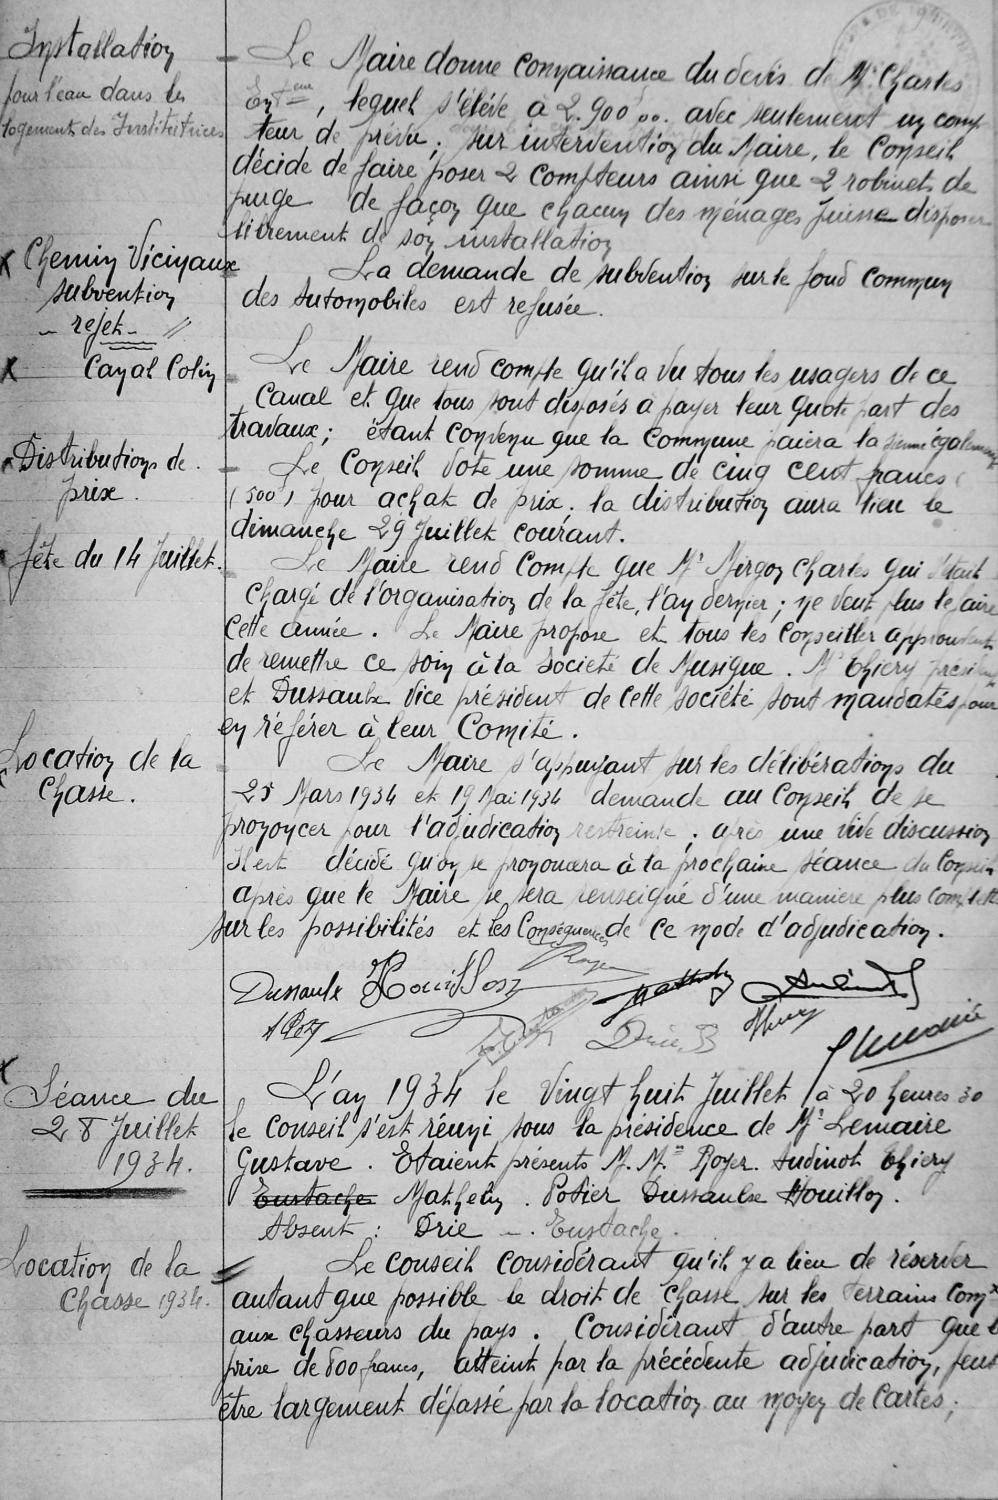 Installation
pour l'eau dans les
logements des Institutrices
Le Maire donne connaissance du devis de Mr Charles
lequel s'élève à 2.900f00. avec seulement un comp
teur de prévu; sur intervention du Maire, le Conseil
décide de faire poser 2 compteurs ainsi que 2 robinets de
purge de façon que chacun des ménages puisse disposer
librement de son installation
Chemin Vicinaux
subvention
- rejet - //
La demande de subvention sur le fond commun
des automobiles est refusée.
Canal Colin
Le Maire rend compte qu'il a vu tous les usagers de ce
Canal et que tous sont disposés à payer leur quote part des
travaux; étant convenu que la Commune paiera la sienne également
Distributions de
prix.
Le Conseil vote une somme de cinq cent francs
(500f) pour achat de prix. la distribution aura lieu le
dimanche 29 Juillet courant.
fête du 14 Juillet.
Le Maire rend compte que Mr Mirgon Charles qui s'était
chargé de l'organisation de la fête, l'an dernier; ne veut plus le faire
cette année. Le Maire propose et tous les Conseiller approuvent
de remettre ce soin à la Société de Musique. Mr Thiery président
et Dussaulx Vice président de cette société sont mandatés pour
en référer à leur Comité.
Location de la
Chasse.
Le Maire s'appuyant sur les délibérations du
25 Mars 1934 et 19 Mai 1934 demande au Conseil de se
prononcer pour l'adjudication restreinte; après une vive discussion
Il est décidé qu'on se prononcera à la prochaine séance du Conseil
après que le Maire se sera renseigné d'une manière plus complette
sur les possibilités et les Conséquences de ce mode d'adjudication.
Dussaulx Houillon Royer Mathelin
Drie
Séance du
28 Juillet
1934.
L'an 1934 le Vingt huit Juillet à 20 heures 30
le Conseil s'est réuni sous la présidence de Mr Lemaire
Gustave. Etaient présents M.M.rs Royer. Audinot Thiery
Eustache Mathelin. Potier Dussaulx Houillon.
Absent: Drie -. Eustache.
Location de la
Chasse 1934.
Le conseil considérant qu'il y a lieu de réserver
autant que possible le droit de chasse sur les terrains Comx
aux chasseurs du pays. Considérant d'autre part que le
prix de 800 francs, atteint par la précédente adjudication, peut
être largement dépassé par la location au moyen de cartes;